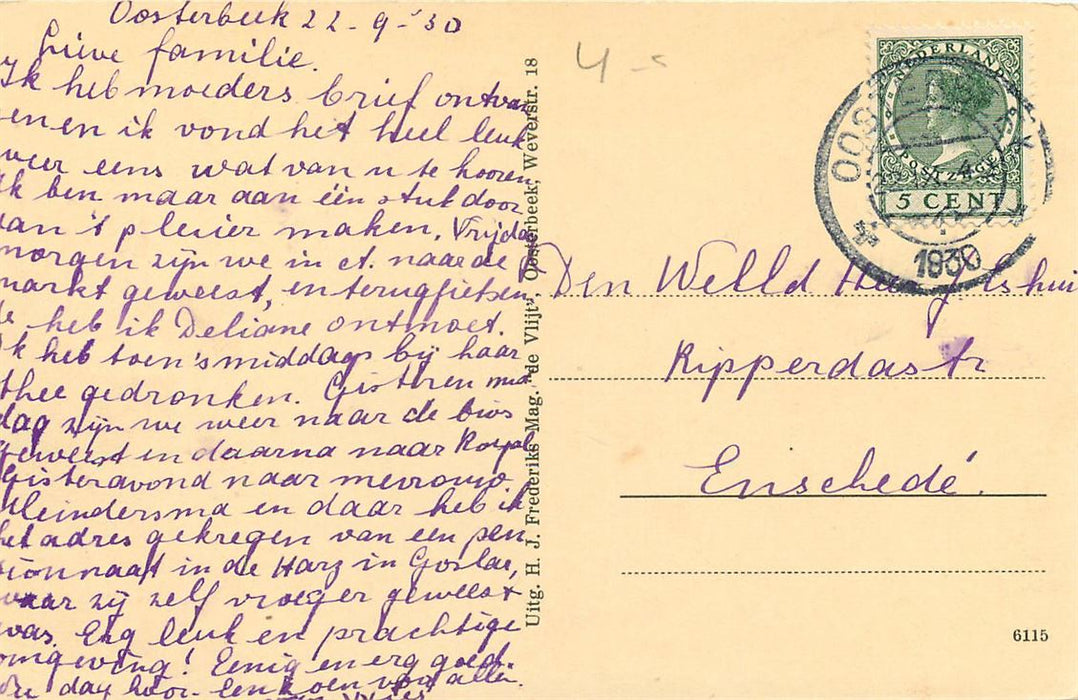 Oosterbeek 22-9-'30
Lieve familie.
Ik heb moeders brief ontvan
en en ik vond het heel leuk
weer eens wat van u te hooren
Ik ben maar aan één stuk door
aan 't plezier maken. Vrijda
morgen zijn we in ct. naar de
markt geweest, en terugfietsen
de heb ik Deliane ontmoet.
Ik heb toen 's middags bij haar
thee gedronken. Gisteren mid
dag zijn we weer naar de bios
geweest en daarna naar Royal
Gisteravond naar mevrouw
Meindersma en daar heb ik
het adres gekregen van een pen
sionnaat in de Harz in Goslar,
waar zij zelf vroeger geweest
was. Erg leuk en prachtige
omgeving! Eenig en erg goed.
dag hoor. Een zoen voor allen.
Uitg. H. J. Frederiks Mag. „de Vlijt", Oosterbeek, Weverstr. 18
4-
NEDERLAND
POSTZEGEL
5 CENT
OOSTERBEEK
1930
Den WelEd Heer
Ripperdastr
Enschedé.
6115